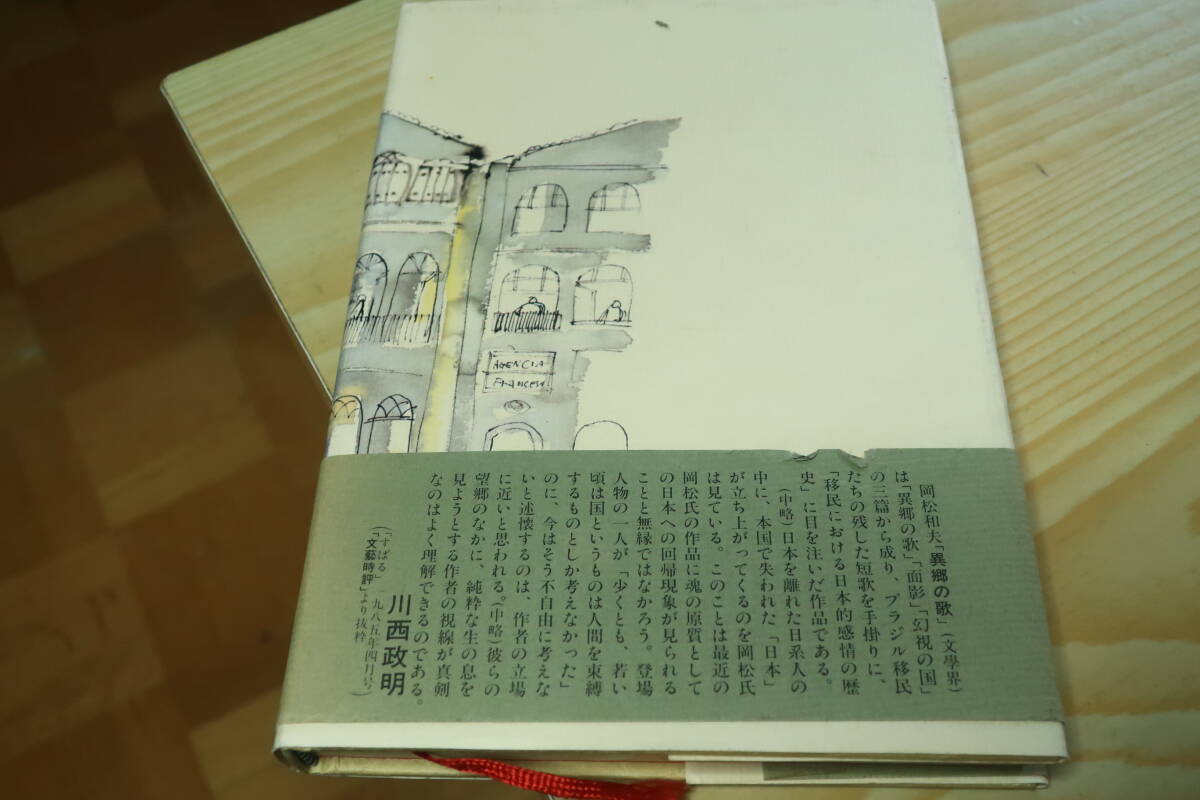 AGENCIA
FRANCESA
岡松和夫「異郷の歌」(文學界)
は「異郷の歌」「面影」「幻視の国」
の三篇から成り、ブラジル移民
たちの残した短歌を手掛りに、
「移民における日本的感情の歴
史」に目を注いだ作品である。
(中略)日本を離れた日系人の
中に、本国で失われた「日本」
が立ち上がってくるのを岡松氏
は見ている。このことは最近の
岡松氏の作品に魂の原質として
の日本への回帰現象が見られる
ことと無縁ではなかろう。登場
人物の一人が「少くとも、若い
頃は国というものは人間を束縛
するものとしか考えなかった」
のに、今はそう不自由に考えな
いと述懐するのは、作者の立場
に近いと思われる。(中略)彼らの
望郷のなかに、純粋な生の息を
見ようとする作者の視線が真剣
なのはよく理解できるのである。
川西政明
(「すばる」一九八五年四月号)
「文藝時評」より抜粋